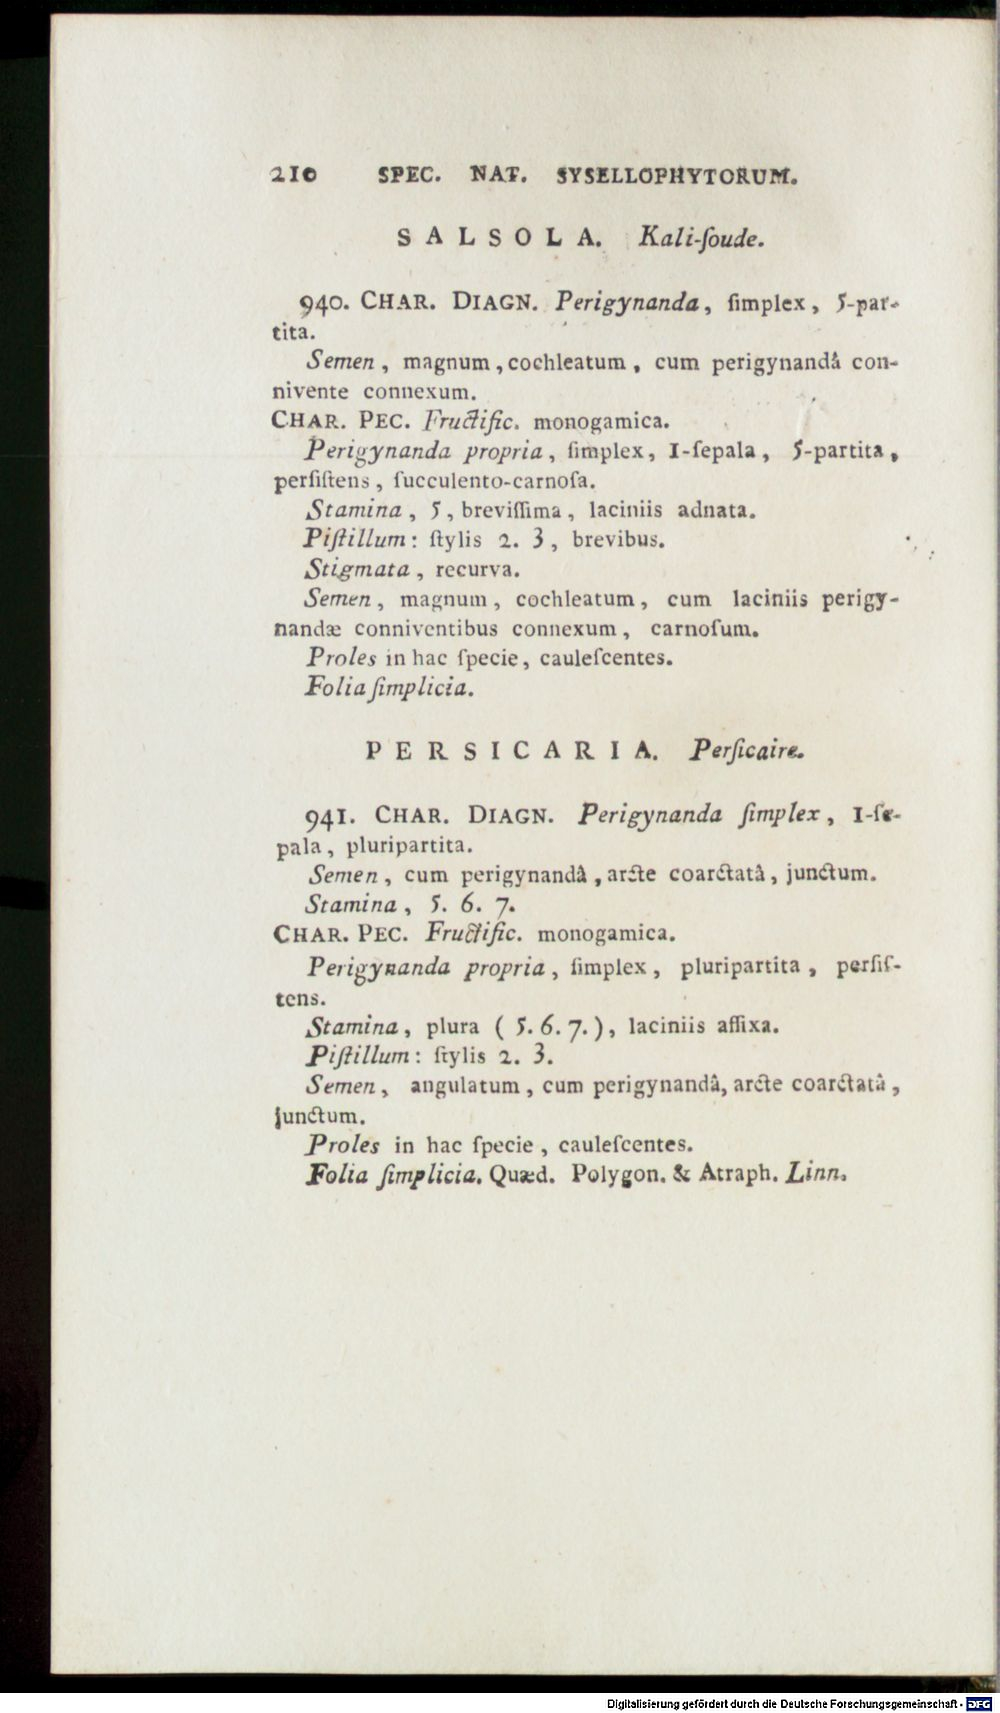 210 SPEC. NAT. SYSELLOPHYTORUM.
SALSOLA. Kali-ſoude.
940. CHAR. DIAGN. Perigynanda, ſimplex, 5-par-
tita.
Semen, magnum, cochleatum, cum perigynandâ con-
nivente connexum.
CHAR. PEC. Fructific. monogamica.
Perigynanda propria, ſimplex, 1-ſepala, 5-partita,
perſiſtens, ſucculento-carnoſa.
Stamina, 5, breviſſima, laciniis adnata.
Piſtillum: ſtylis 2. 3, brevibus.
Stigmata, recurva.
Semen, magnum, cochleatum, cum laciniis perigy-
nandæ conniventibus connexum, carnoſum.
Proles in hac ſpecie, cauleſcentes.
Folia ſimplicia.
PERSICARIA. Perſicaire.
941. CHAR. DIAGN. Perigynanda ſimplex, 1-ſe-
pala, pluripartita.
Semen, cum perigynandâ, arcte coarctatâ, junctum.
Stamina, 5. 6. 7.
CHAR. PEC. Fructific. monogamica.
Perigynanda propria, ſimplex, pluripartita, perſiſ-
tens.
Stamina, plura (5. 6. 7.), laciniis affixa.
Piſtillum: ſtylis 2. 3.
Semen, angulatum, cum perigynandâ, arcte coarctatâ,
junctum.
Proles in hac ſpecie, cauleſcentes.
Folia ſimplicia. Quæd. Polygon. & Atraph. Linn.
Digitalisierung gefördert durch die Deutsche Forschungsgemeinschaft - DFG